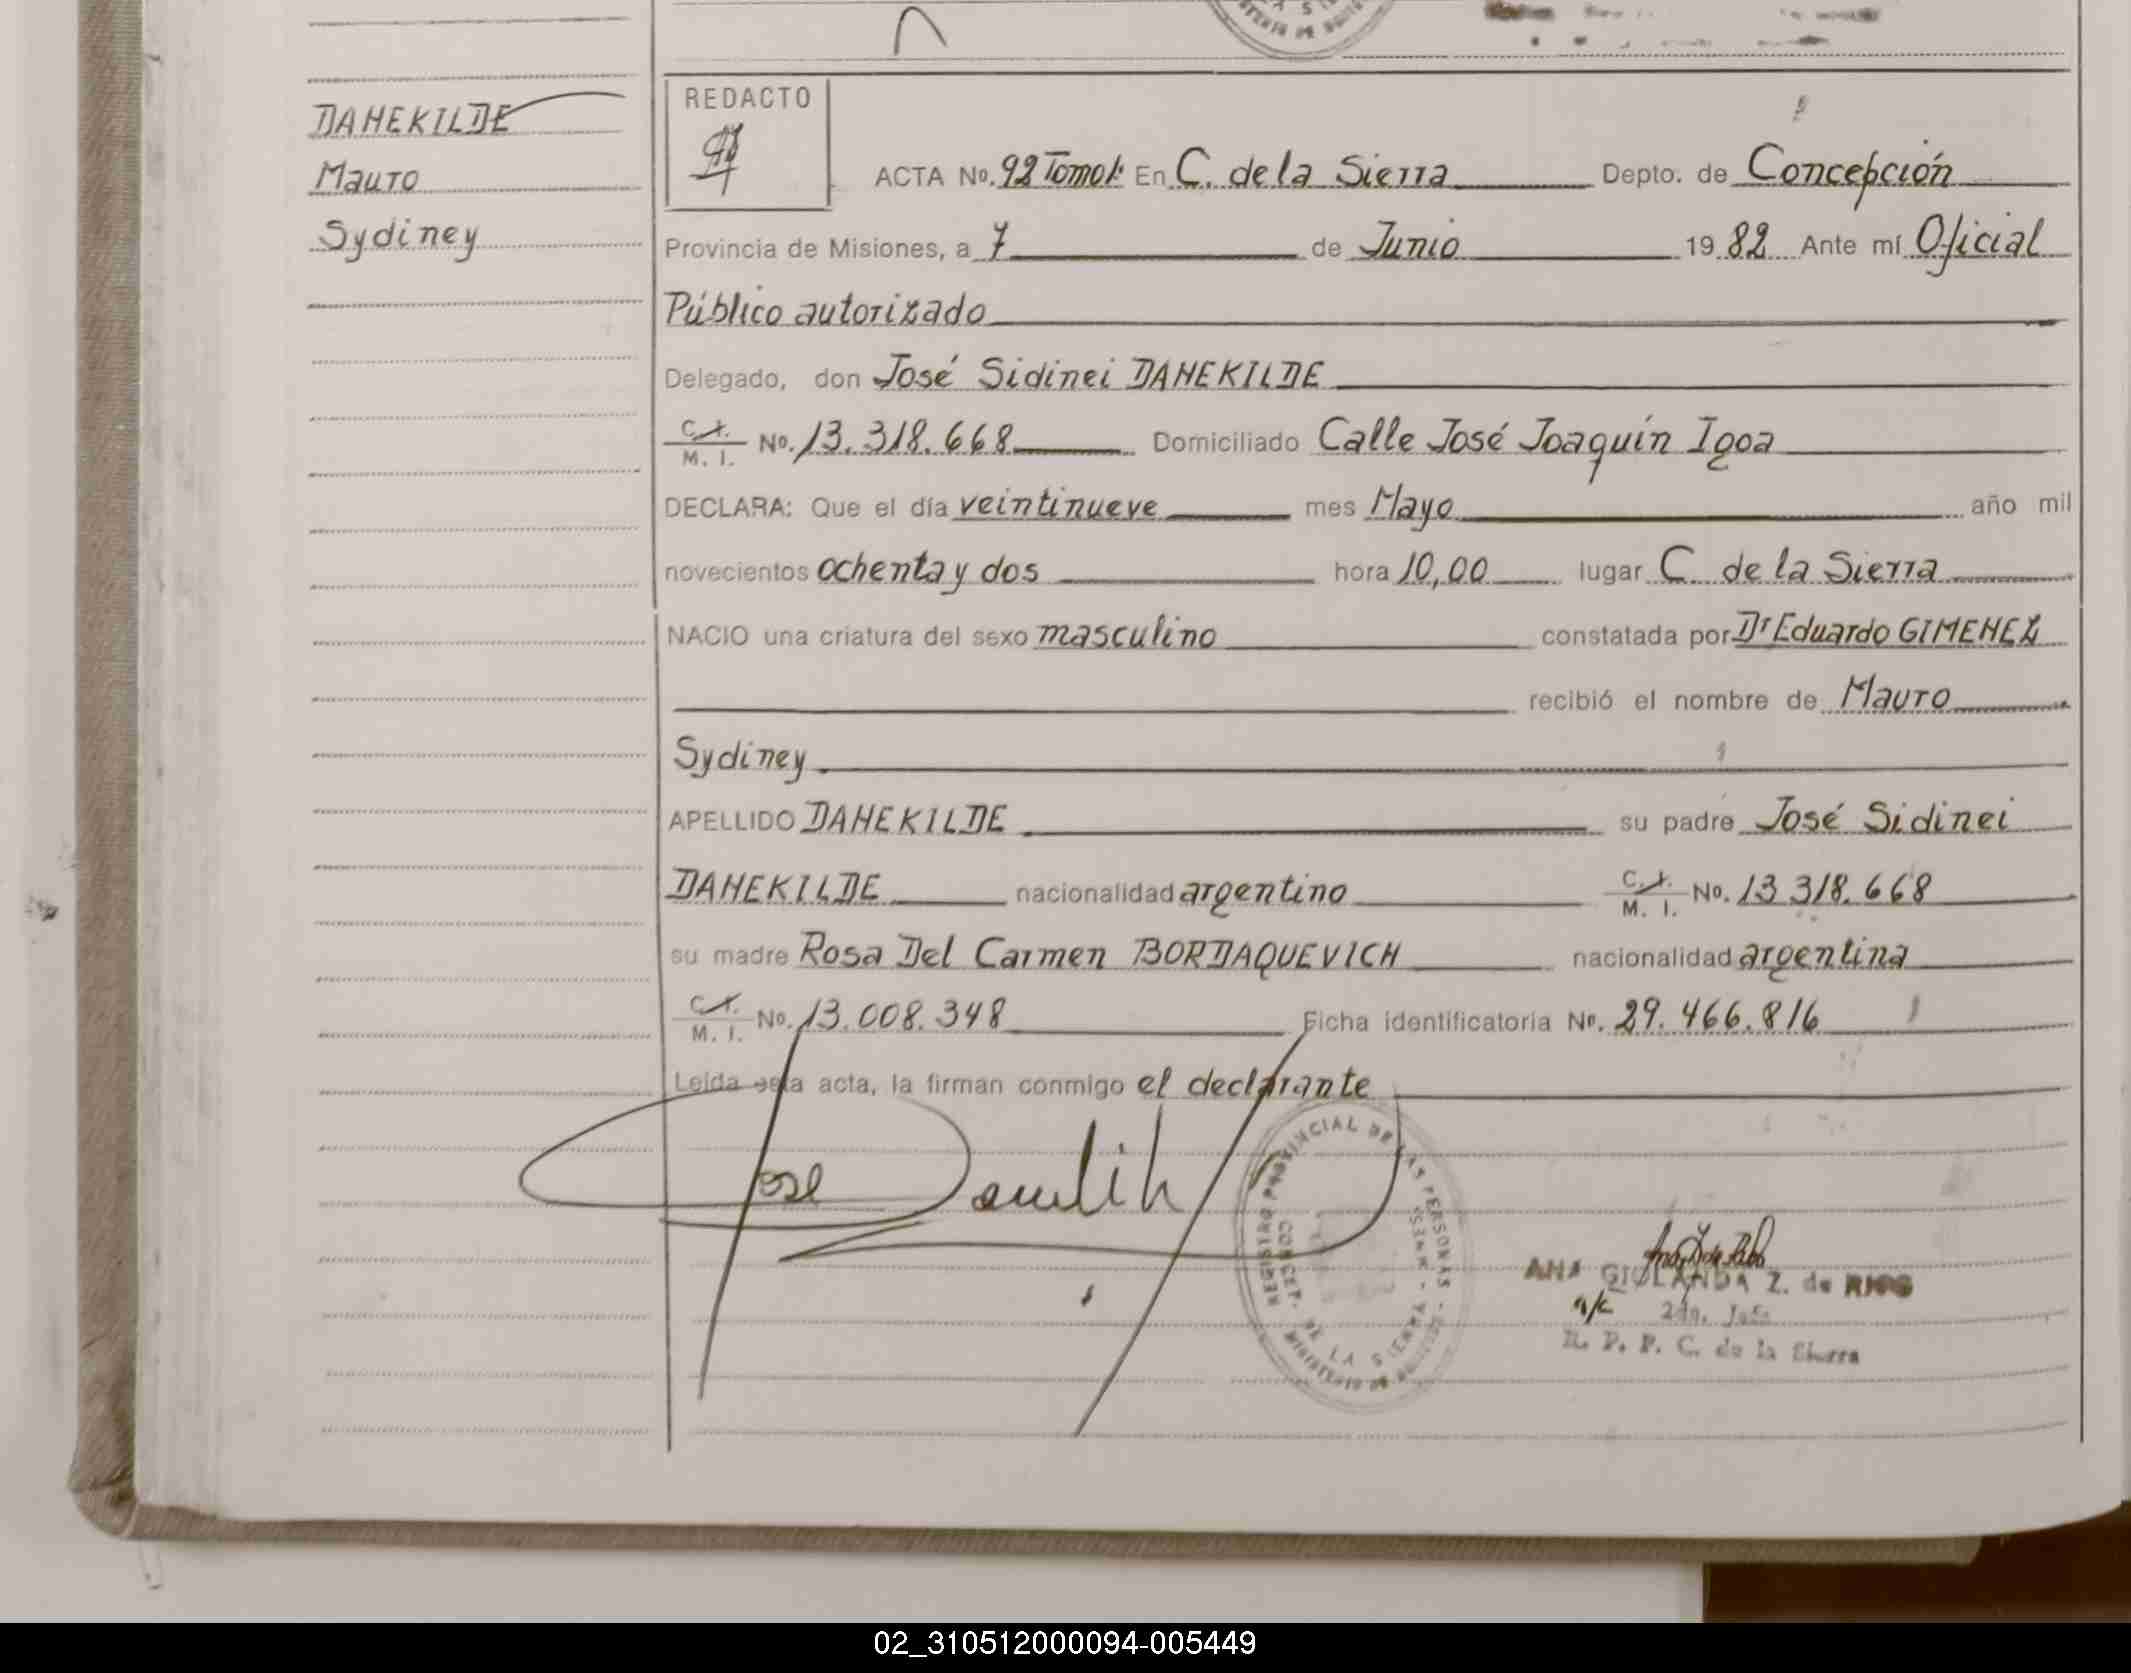 DANEKILDE
Mauro
Sydiney
REDACTO
ACTA No. 92 Tomo 1º En C. de la Sierra Depto. de Concepción
Provincia de Misiones, a 7 de Junio 19 82 Ante mí Oficial
Público autorizado
Delegado, don José Sidinei DANEKILDE
C. I. M. I. No. 13.318.668 Domiciliado Calle José Joaquín Igoa
DECLARA: Que el día veintinueve mes Mayo año mil
novecientos ochenta y dos hora 10,00 lugar C. de la Sierra
NACIO una criatura del sexo masculino constatada por Dr Eduardo GIMENEZ
recibió el nombre de Mauro
Sydiney
APELLIDO DANEKILDE su padre José Sidinei
DANEKILDE nacionalidad argentino C. I. M. I. No. 13 318.668
su madre Rosa Del Carmen BORDAQUEVICH nacionalidad argentina
C. I. M. I. No. 13.008.348 Ficha identificatoria No. 29.466.816
Leida esta acta, la firman conmigo el declarante
REGISTRO PROVINCIAL DE LAS PERSONAS
CONCEP. DE LA SIERRA
ANA GIOLANDA Z. de RIOS
a/c 2da. Jefe
R. P. P. C. de la Sierra
02_310512000094-005449